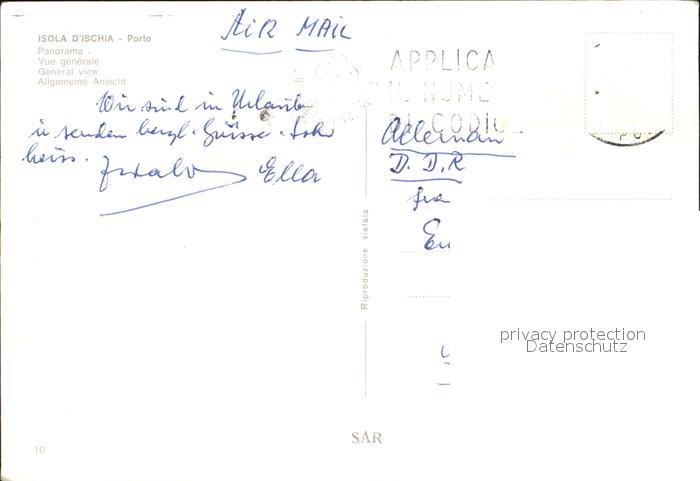 AIR MAIL
ISOLA D'ISCHIA - Porto
Panorama -
Vue générale
General view
Allgemeine Ansicht
APPLICA
IL NUME
DI CODIC
Wir sind in Urlaub
u senden herzl. Grüsse. Sehr
heiss.
Ella
Alleman
D. D. R
Riproduzione vietata
privacy protection
Datenschutz
SAR
10